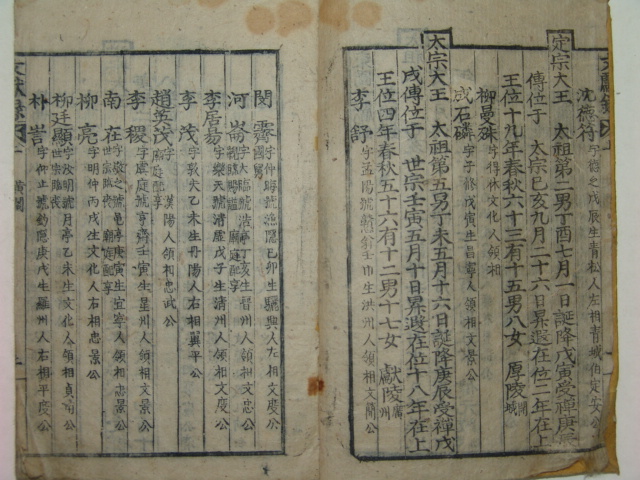 文獻錄
沈德符 字德之戊辰生青松人左相青城伯定安公
定宗大王 太祖第二男丁酉七月一日誕降戊寅受禪庚辰
傳位于 太宗己亥九月二十六日昇遐在位二年在上
王位十九年春秋六十三有十五男八女 厚陵 開城
柳曼殊 字得休文化人領相
成石磷 字子修戊寅生昌寧人領相文景公
太宗大王 太祖第五男丁未五月十六日誕降庚辰受禪戊
戌傳位于 世宗壬寅五月十日昇遐在位十八年在上
王位四年春秋五十六有十二男十七女 獻陵 廣州
李舒 字孟陽 洪州人領相文簡公
閔霽 字仲晦號漁隱己卯生驪興人左相文度公 國舅
河崙 字大臨號浩亭丁亥生晉州人領相文忠公 廟庭配享
李居易 字樂天號清虛戊子生清州人領相文度公
李茂 字敦夫乙未生丹陽人右相翼平公
趙英茂 字 漢陽人領相忠武公 廟庭配享
李稷 字虞庭號亨齋壬寅生星州人領相文景公
南在 字敬之號龜亭庚寅生宜寧人領相忠景公
柳亮 字明仲丙戌生文化人右相忠景公
柳廷顯 字汝明號月亭乙未生文化人領相貞肅公
朴訔 字仰止號釣隱庚戌生羅州人右相平度公
文獻錄